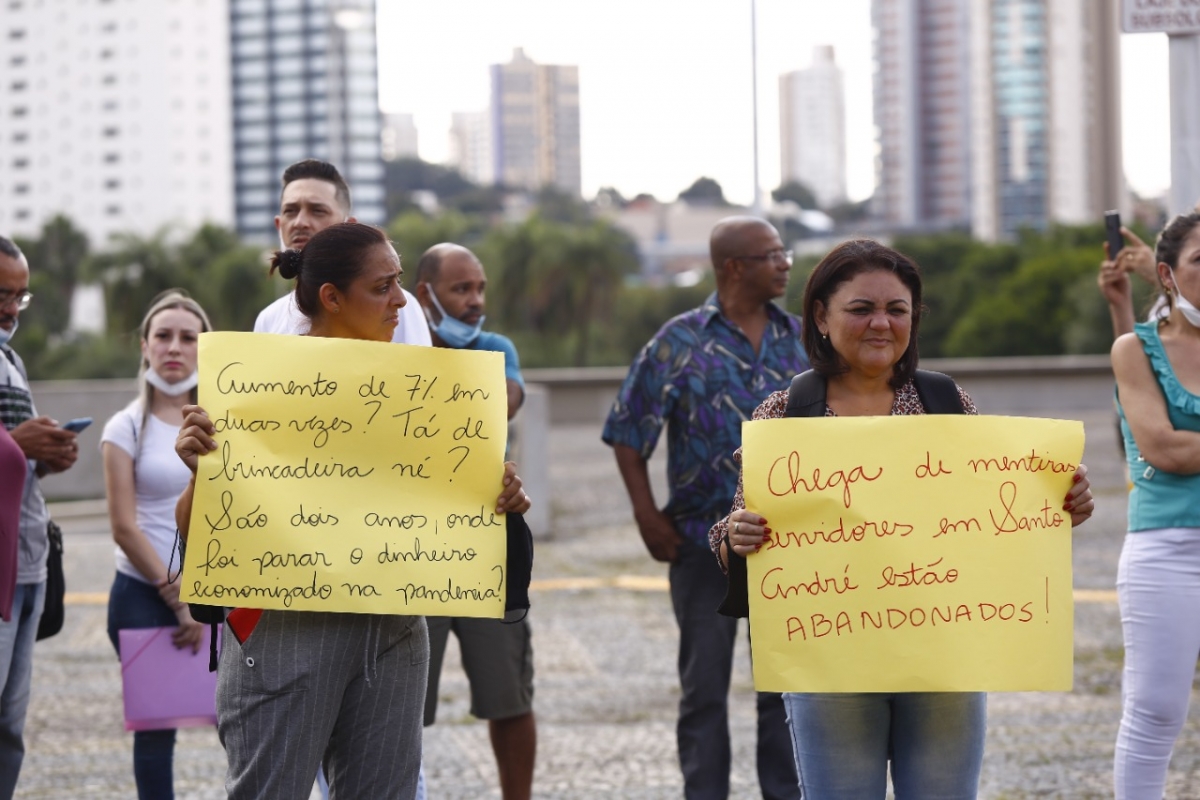 Aumento de 7% em
duas vezes? Tá de
brincadeira né?
São dois anos, onde
foi parar o dinheiro
economizado na pandemia?
Chega de mentiras
servidores em Santo
André estão
ABANDONADOS!